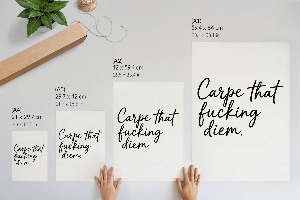 (A4)
21 x 29.7 cm
Carpe that
fucking
diem.
(A3)
29.7 x 42 cm
Carpe that
fucking
diem.
(A2)
42 x 59.4 cm
Carpe that
fucking
diem.
(A1)
59.4 x 84 cm
Carpe that
fucking
diem.